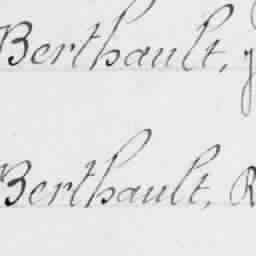 Berthault, J
Berthault, R